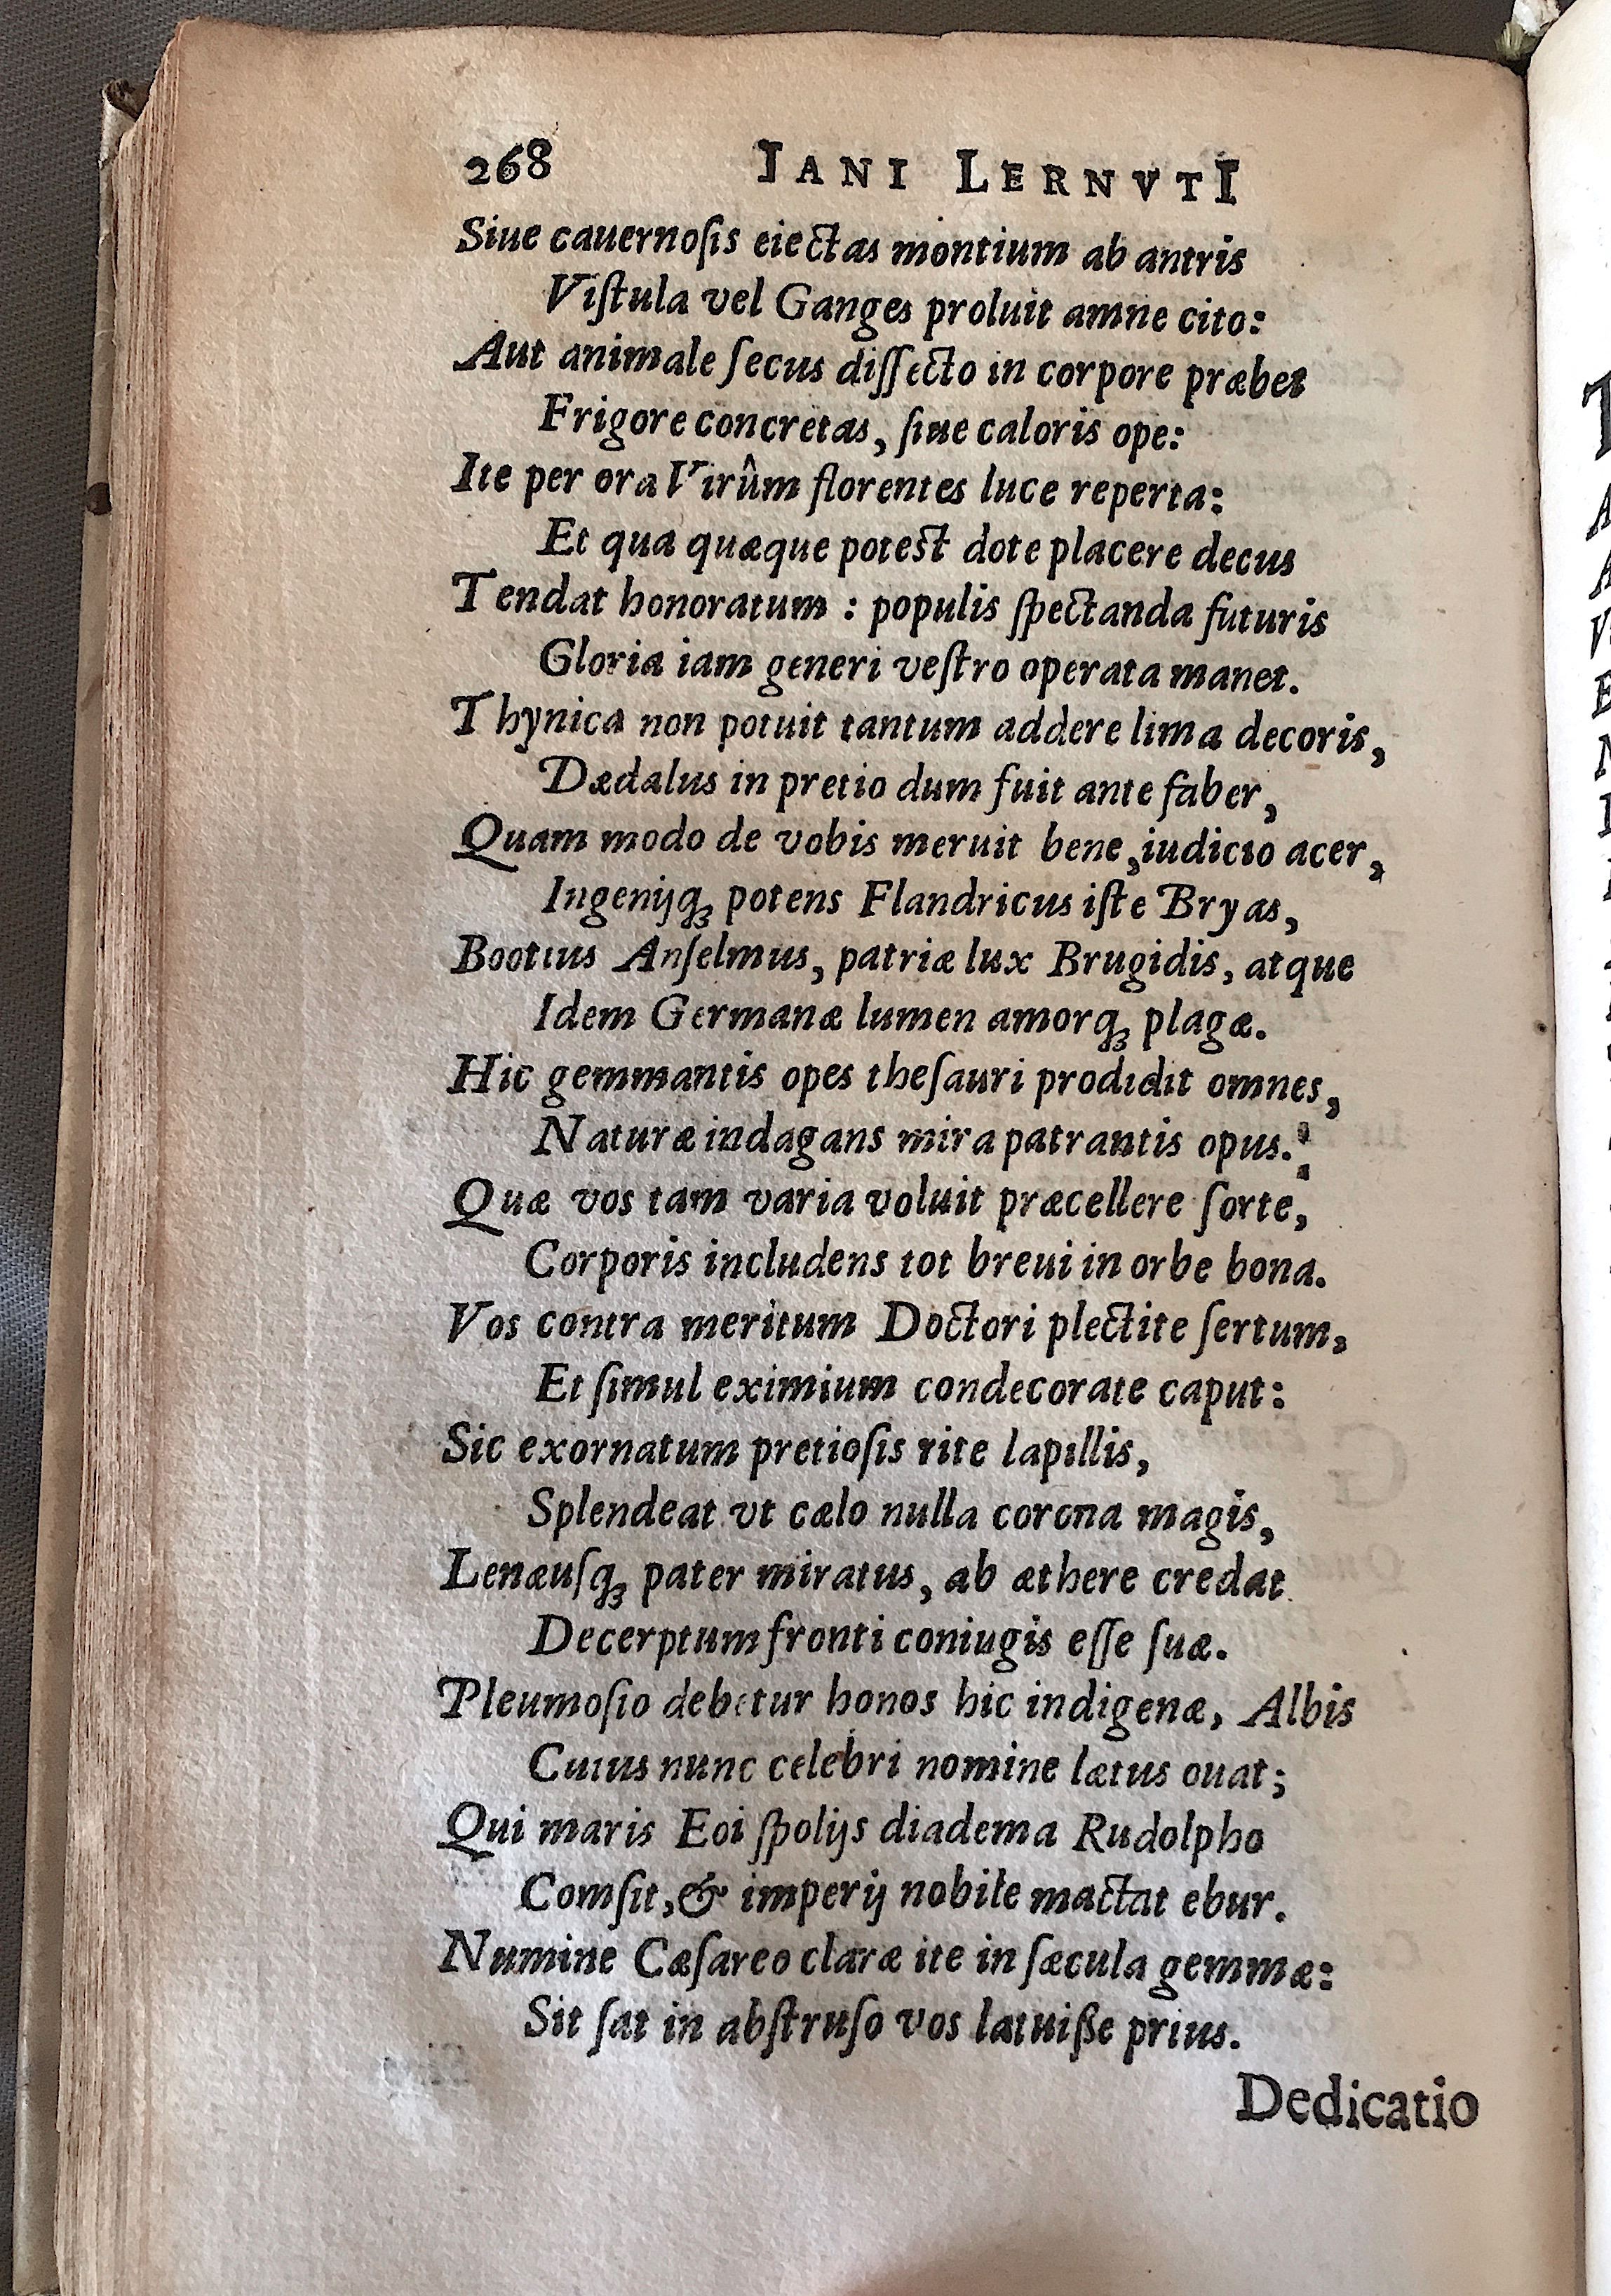 268 IANI LERNVTI
Siue cauernoſis eiectas montium ab antris
Viſtula vel Ganges proluit amne cito:
Aut animale ſecus diſſecto in corpore præbet
Frigore concretas, ſiue caloris ope:
Ite per ora Virûm florentes luce reperta:
Et qua quæque poteſt dote placere decus
Tendat honoratum : populis ſpectanda futuris
Gloria iam generi veſtro operata manet.
Thynica non potuit tantum addere lima decoris,
Dædalus in pretio dum fuit ante faber,
Quam modo de vobis meruit bene, iudicio acer,
Ingenijq; potens Flandricus iſte Bryas,
Bootius Anſelmus, patriæ lux Brugidis, atque
Idem Germanæ lumen amorq; plagæ.
Hic gemmantis opes theſauri prodidit omnes,
Naturæ indagans mira patrantis opus.
Quæ vos tam varia voluit præcellere ſorte,
Corporis includens tot breui in orbe bona.
Vos contra meritum Doctori plectite ſertum,
Et ſimul eximium condecorate caput:
Sic exornatum pretioſis rite lapillis,
Splendeat vt cælo nulla corona magis,
Lenæuſq; pater miratus, ab æthere credat
Decerptum fronti coniugis eſſe ſuæ.
Pleumoſio debetur honos hic indigenæ, Albis
Cuius nunc celebri nomine lætus ouat;
Qui maris Eoi ſpolijs diadema Rudolpho
Comſit, & imperij nobile mactat ebur.
Numine Cæſareo claræ ite in ſæcula gemmæ:
Sit ſat in abſtruſo vos latuiße prius.
Dedicatio